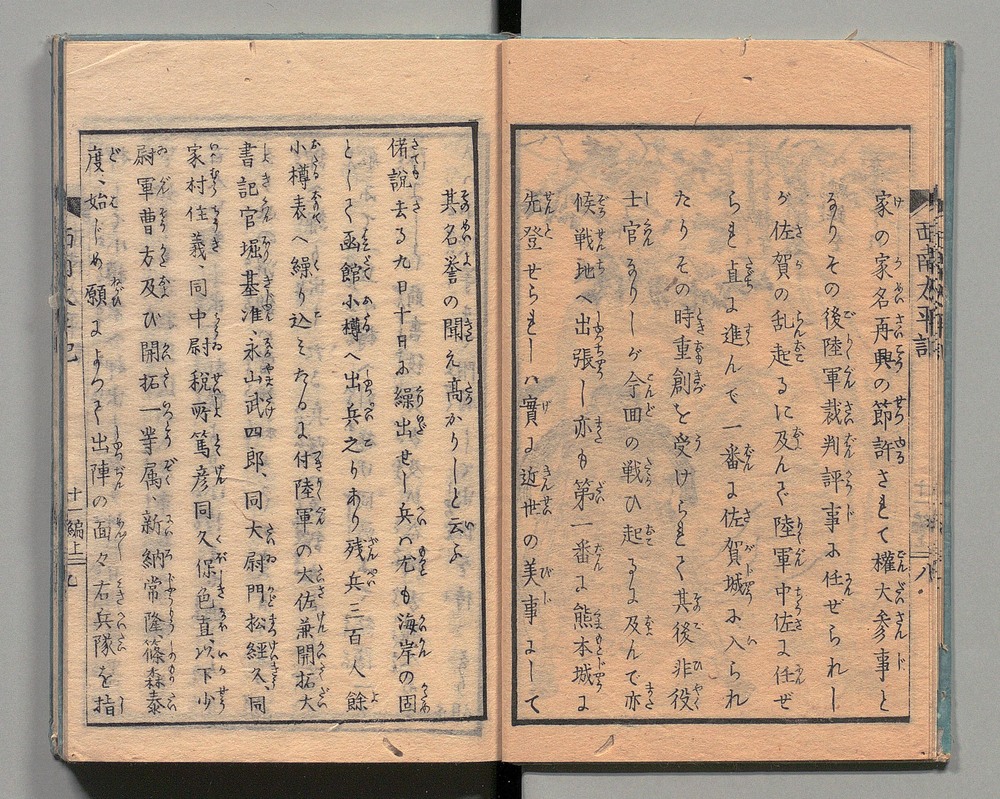 家の家名再興の節許されて權大参事と
なりその後陸軍裁判評事に任ぜられし
が佐賀の乱起るに及んで陸軍中佐に任ぜ
られ直に進んで一番に佐賀城に入られ
たりその時重創を受けられて其後非役
士官なりしが今回の戦ひ起るに及んで亦
候戦地へ出張し亦も第一番に熊本城に
先登せられしハ實に近世の美事にして
其名誉の聞え高かりしと云ふ
偖説去る九日十日に繰出せし兵ハ尤も海岸の固
として函館小樽へ出兵之りあり残兵三百人餘
小樽表へ繰り込こたるに付陸軍の大佐兼開拓大
書記官堀基准、永山武四郎、同大尉門松経久、同
家村住義、同中尉税所篤彦同久保色直以下少
尉軍曹方及び開拓一等属新納常隆篠森泰
度、始じめ願によつて出陣の面々右兵隊を指
西南太平記
八
十一編上
九